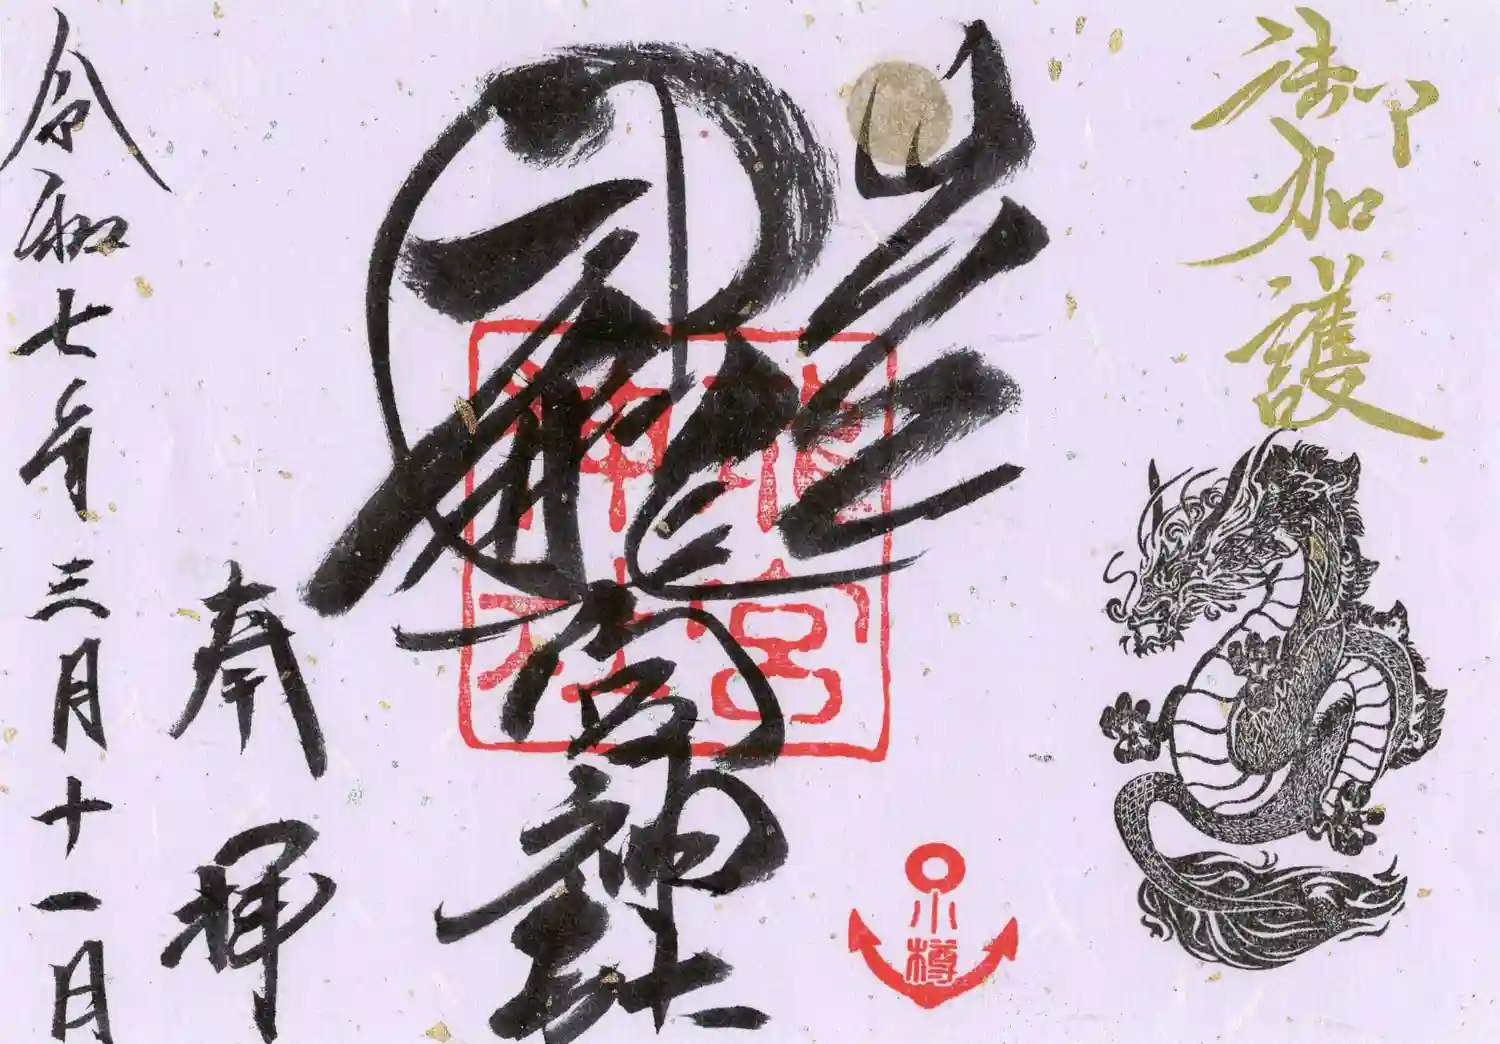 御加護
龍宮神社
龍宮
神社
小樽
奉拝
令和七年三月十一日